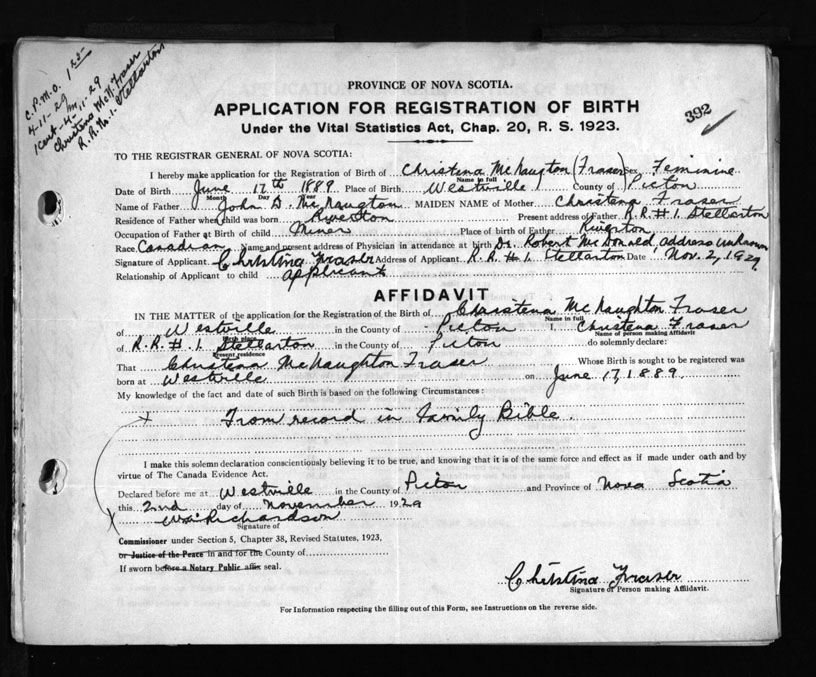 C.P.M.O. 1
4-11-29
1 Cert- 4-11-29
Christena McN. Fraser
R.R. No. 1- Stellarton
PROVINCE OF NOVA SCOTIA.
APPLICATION FOR REGISTRATION OF BIRTH
392
Under the Vital Statistics Act, Chap. 20, R. S. 1923.
TO THE REGISTRAR GENERAL OF NOVA SCOTIA:
I hereby make application for the Registration of Birth of Christena McNaugton (Fraser) Sex Feminine
Name in full
Date of Birth June 17th 1889 Place of Birth Westville County of Picton
Month Day Year
Name of Father John D. McNaugton MAIDEN NAME of Mother Christena Fraser
Residence of Father when child was born Riverton Present address of Father R.R.# 1. Stellarton
Occupation of Father at Birth of child Miner Place of birth of Father Riverton
Race Canadian Name and present address of Physician in attendance at birth Dr. Robert McDonald, address unknown
Signature of Applicant Christina Fraser Address of Applicant R.R. # 1. Stellarton Date Nov. 2, 1929
Relationship of Applicant to child applicant
AFFIDAVIT
IN THE MATTER of the application for the Registration of the Birth of Christena McNaughton Fraser
Name in full
of Westville in the County of Picton I, Christena Fraser
Birth place Name of person making Affidavit
of R.R.#. 1. Stellarton in the County of Picton do solemnly declare:
Present residence
That Christena McNaughton Fraser Whose Birth is sought to be registered was
born at Westville on June 17, 1889.
My knowledge of the fact and date of such Birth is based on the following Circumstances:
x From record in family Bible.
I make this solemn declaration conscientiously believing it to be true, and knowing that it is of the same force and effect as if made under oath and by
virtue of The Canada Evidence Act.
Declared before me at Westville in the County of Picton and Province of Nova Scotia
this 2nd day of November 1929
x Wm Richardson
Signature of
Commissioner under Section 5, Chapter 38, Revised Statutes, 1923,
or Justice of the Peace in and for the County of
If sworn before a Notary Public affix seal.
Christina Fraser
Signature of Person making Affidavit.
For Information respecting the filling out of this Form, see Instructions on the reverse side.